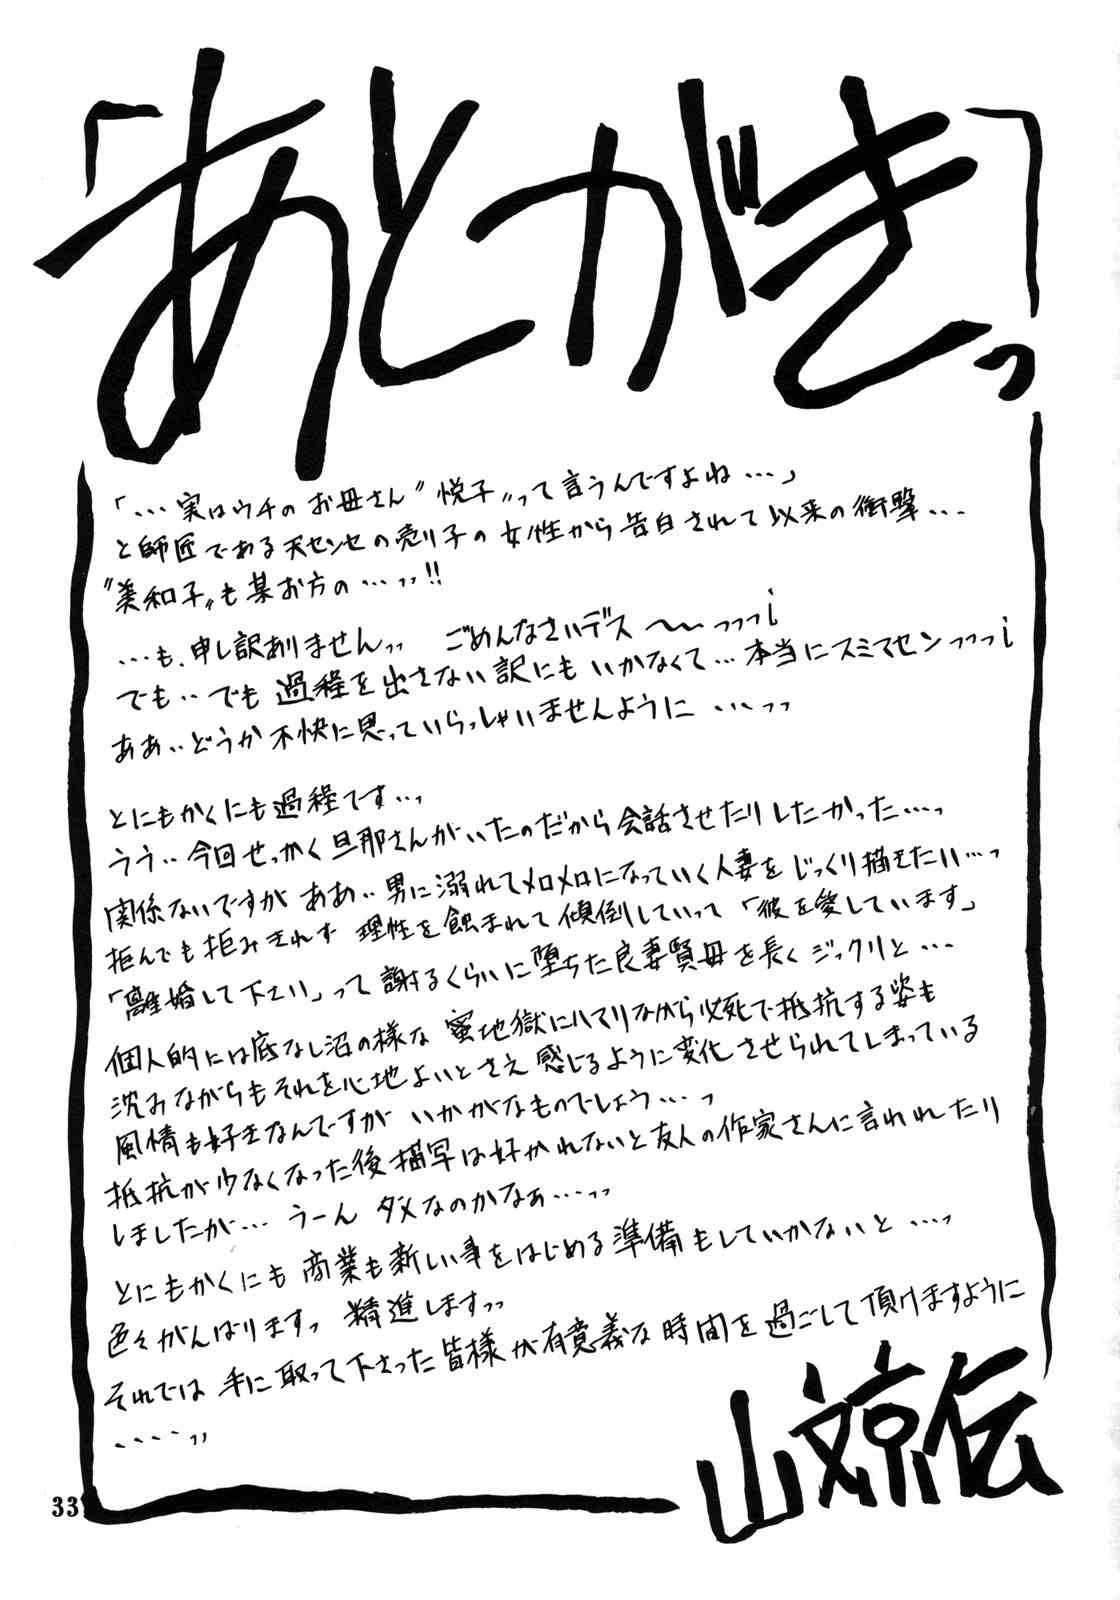 「あとがきっ」
「…実はウチのお母さん〝悦子〟って言うんですよね…」
と師匠である天センセの売り子の女性から告白されて以来の衝撃…
〝美和子〟も某お方の…ッッ!!
…も、申し訳ありませんッッ ごめんなさいデス〜〜っっっ¡
でも‥でも過程を出さない訳にもいかなくて…本当にスミマセンっっっ¡
ああ‥どうか不快に思っていらっしゃいませんように…っっ
とにもかくにも過程です…っ
うう‥今回せっかく旦那さんがいたのだから会話させたりしたかった…っ
関係ないですがああ‥男に溺れてメロメロになっていく人妻をじっくり描きたい…っ
拒んでも拒みきれず理性を蝕まれて傾倒していって「彼を愛しています」
「離婚して下さい」って謝るくらいに堕ちた良妻賢母を長くジックリと…
個人的には底なし沼の様な蜜地獄にハマりながら必死で抵抗する姿も
沈みながらもそれを心地よいとさえ感じるように変化させられてしまっている
風情も好きなんですがいかがなものでしょう…っ
抵抗が少なくなった後描写は好かれないと友人の作家さんに言われたり
しましたが…うーんダメなのかなぁ…っっ
とにもかくにも商業も新しい事をはじめる準備もしていかないと…っ
色々がんばりますっ 精進しますっっ
それでは手に取って下さった皆様が有意義な時間を過ごして頂けますように
‥‥っっ
山文京伝
33